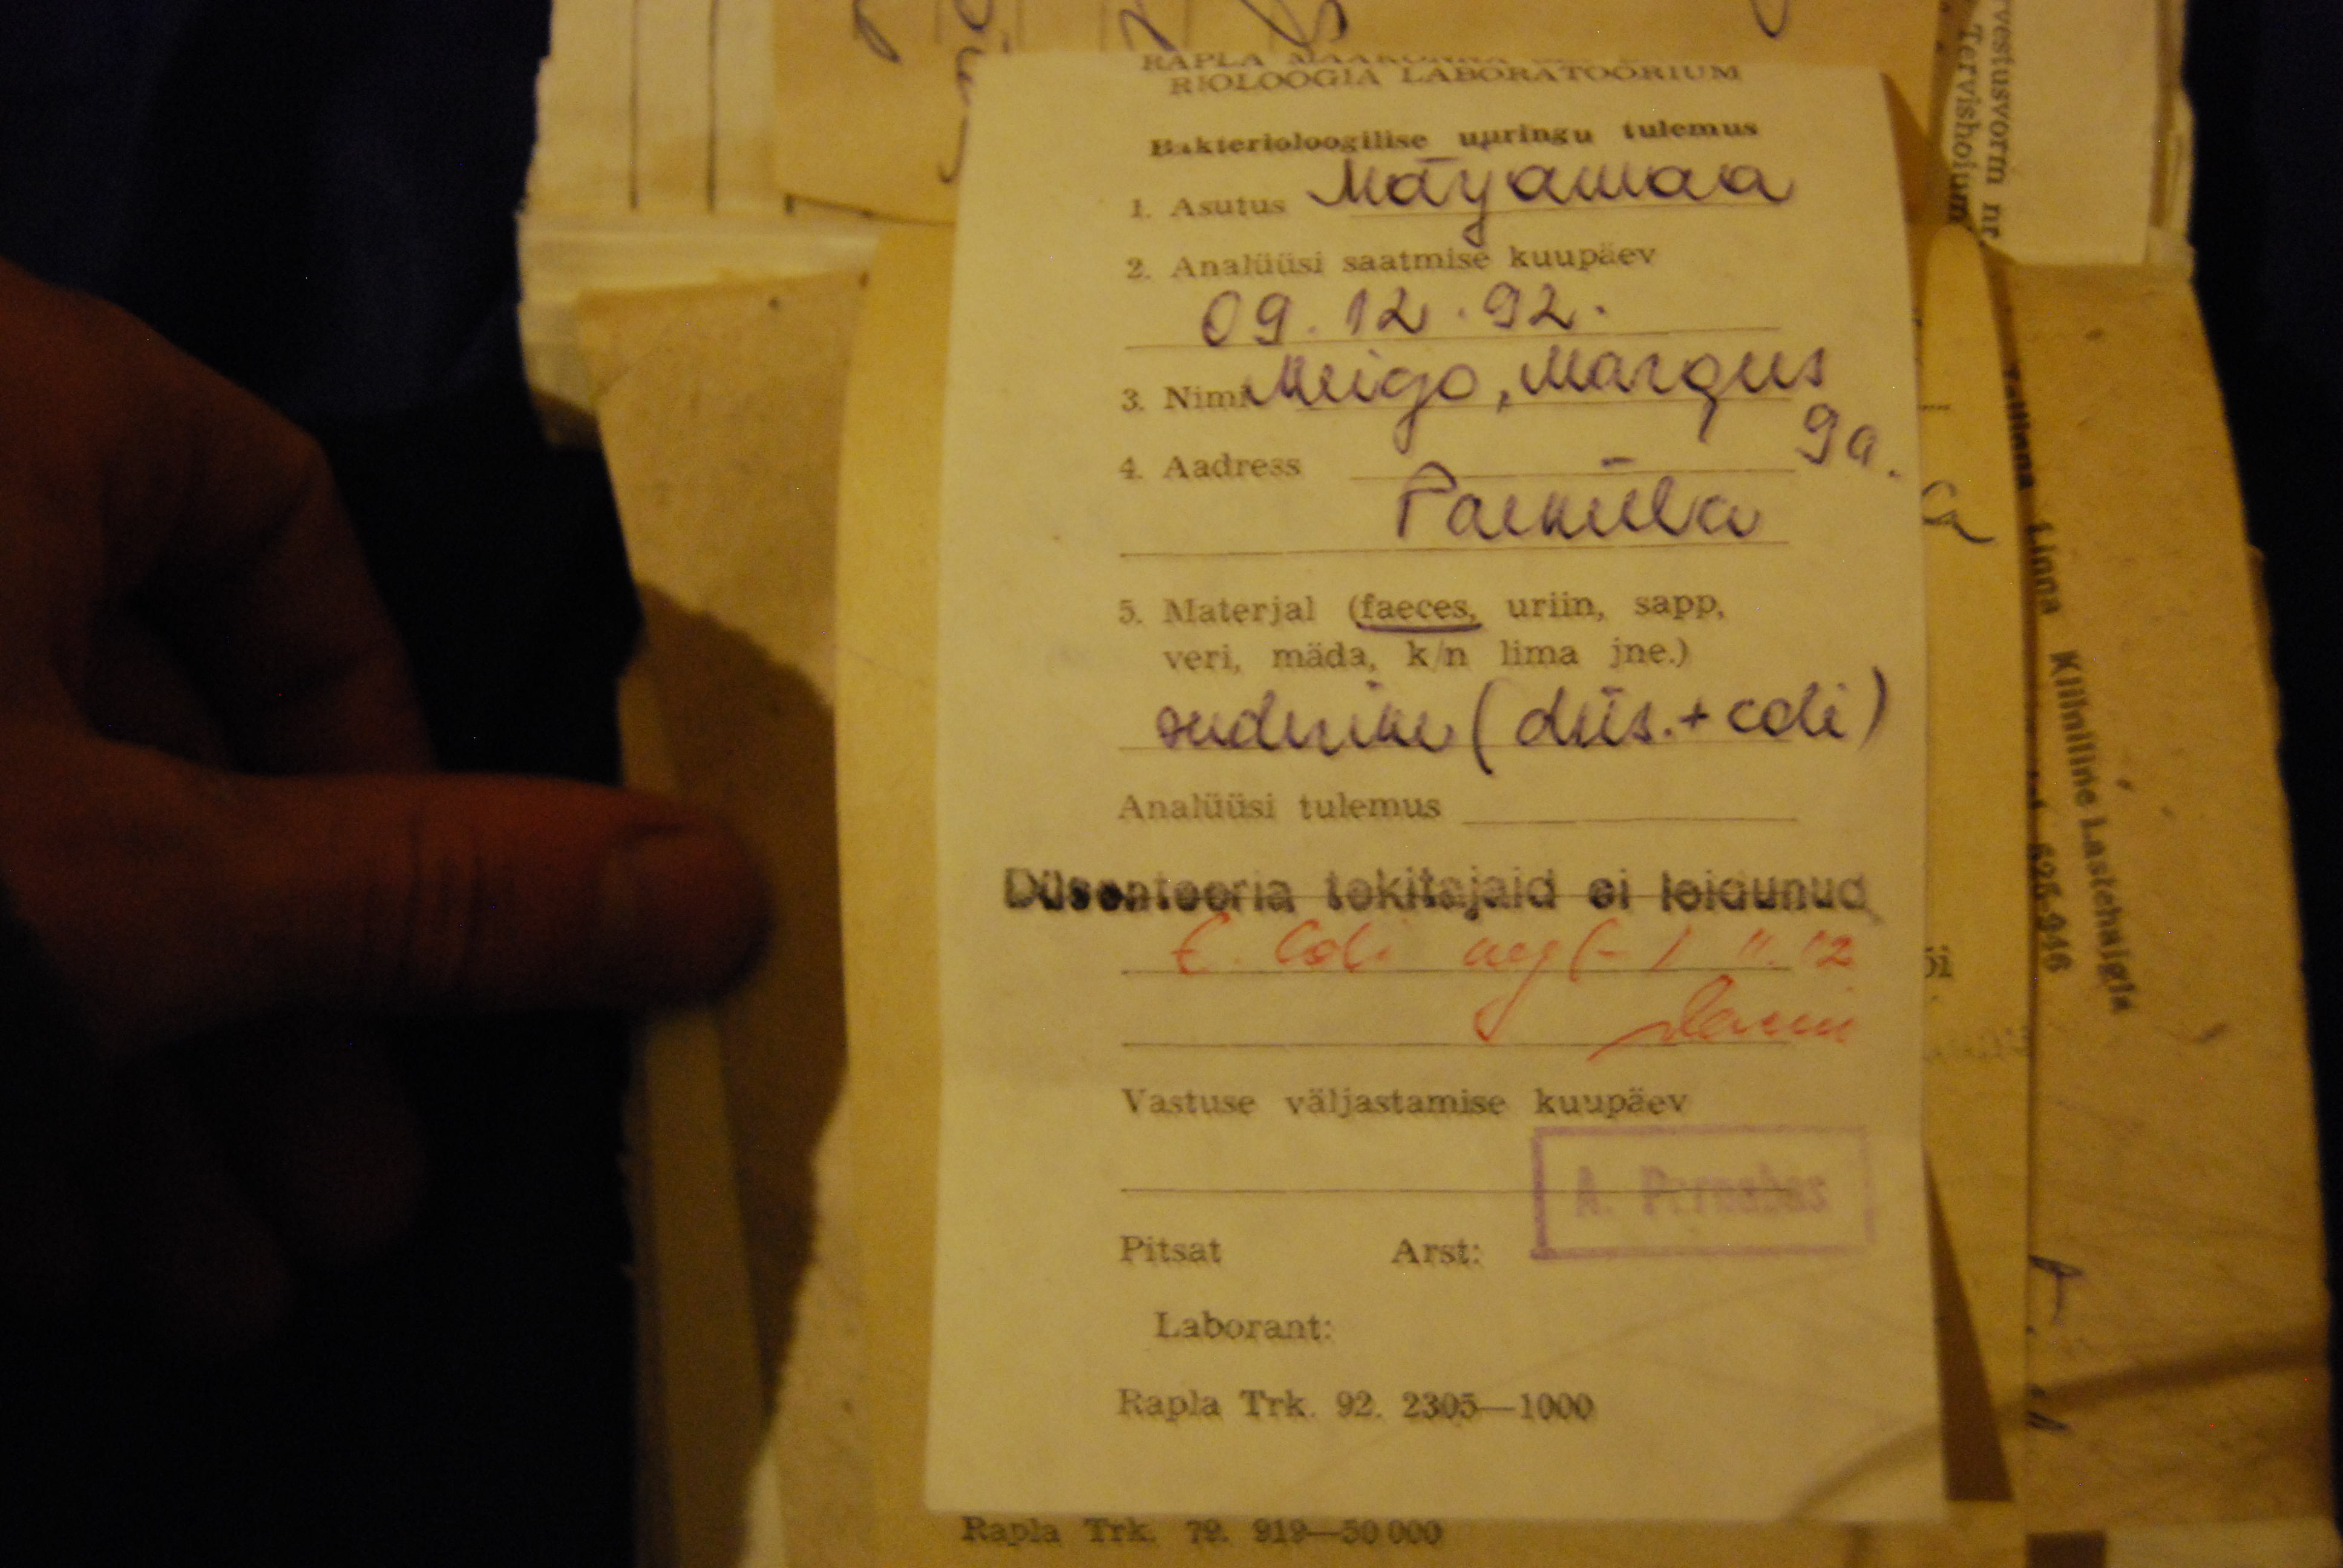 BIOLOOGIA LABORATOORIUM
Bakterioloogilise uuringu tulemus
1. Asutus Märjamaa
2. Analüüsi saatmise kuupäev
09.12.92.
3. Nimi Meigo, Margus
9a.
4. Aadress
Paeküla
5. Materjal (faeces, uriin, sapp,
veri, mäda, k/n lima jne.)
(düs.+coli)
Analüüsi tulemus
Düsenteeria tekitajaid ei leidunud
E. Coli neg (-) 11.12
Vastuse väljastamise kuupäev
Pitsat Arst:
Laborant:
Rapla Trk. 92. 2305—1000
Rapla Trk. 79. 919—50 000
Tallinna Linna Kliiniline Lastehaigla